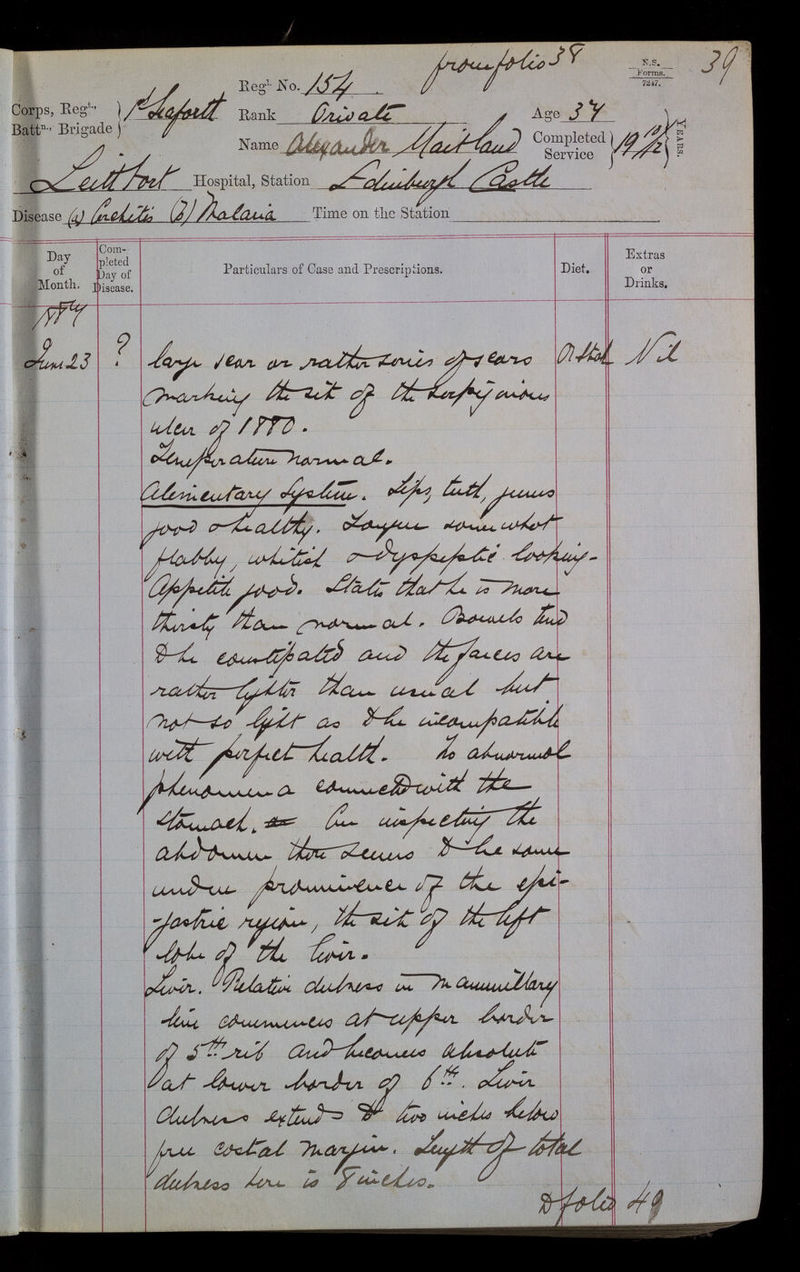 from folio 38
39
N.S.
Forms.
7247.
Regl. No. 154
Corps, Regt.,
Battn., Brigade
1st Seaforth
Rank Private
Age 37
Name Alexander Maitland
Completed
Service
19 10/12
YEARS.
Leith Fort Hospital, Station Edinburgh Castle
Disease (a) Orchitis (b) Malaria Time on the Station
Day
of
Month.
Com-
pleted
Day of
Disease.
Particulars of Case and Prescriptions.
Diet.
Extras
or
Drinks.
1887
June 23 ? large scar or rather series of scars Nil
marking the site of the serpiginous
ulcer of 1880.
Temperature normal.
Alimentary System. Lips, teeth, gums
good & healthy. Tongue somewhat
flabby, whitish & dyspeptic looking-
Appetite good. States that he is more
thirsty than normal. Bowels tend
to be constipated and the faeces are
rather lighter than usual but
not so light as to be incompatible
with perfect health. No abnormal
phenomena connected with the
stomach. On inspecting the
abdomen there seems to be some
undue prominence of the epi-
-gastric region, the site of the left
lobe of the liver.
Liver. Relative dulness in mammillary
line commences at upper border
of 5th rib and becomes absolute
at lower border of 6th. Liver
dulness extends to two inches below
free costal margin. Length of total
dulness here is 8 inches.
To folio 49